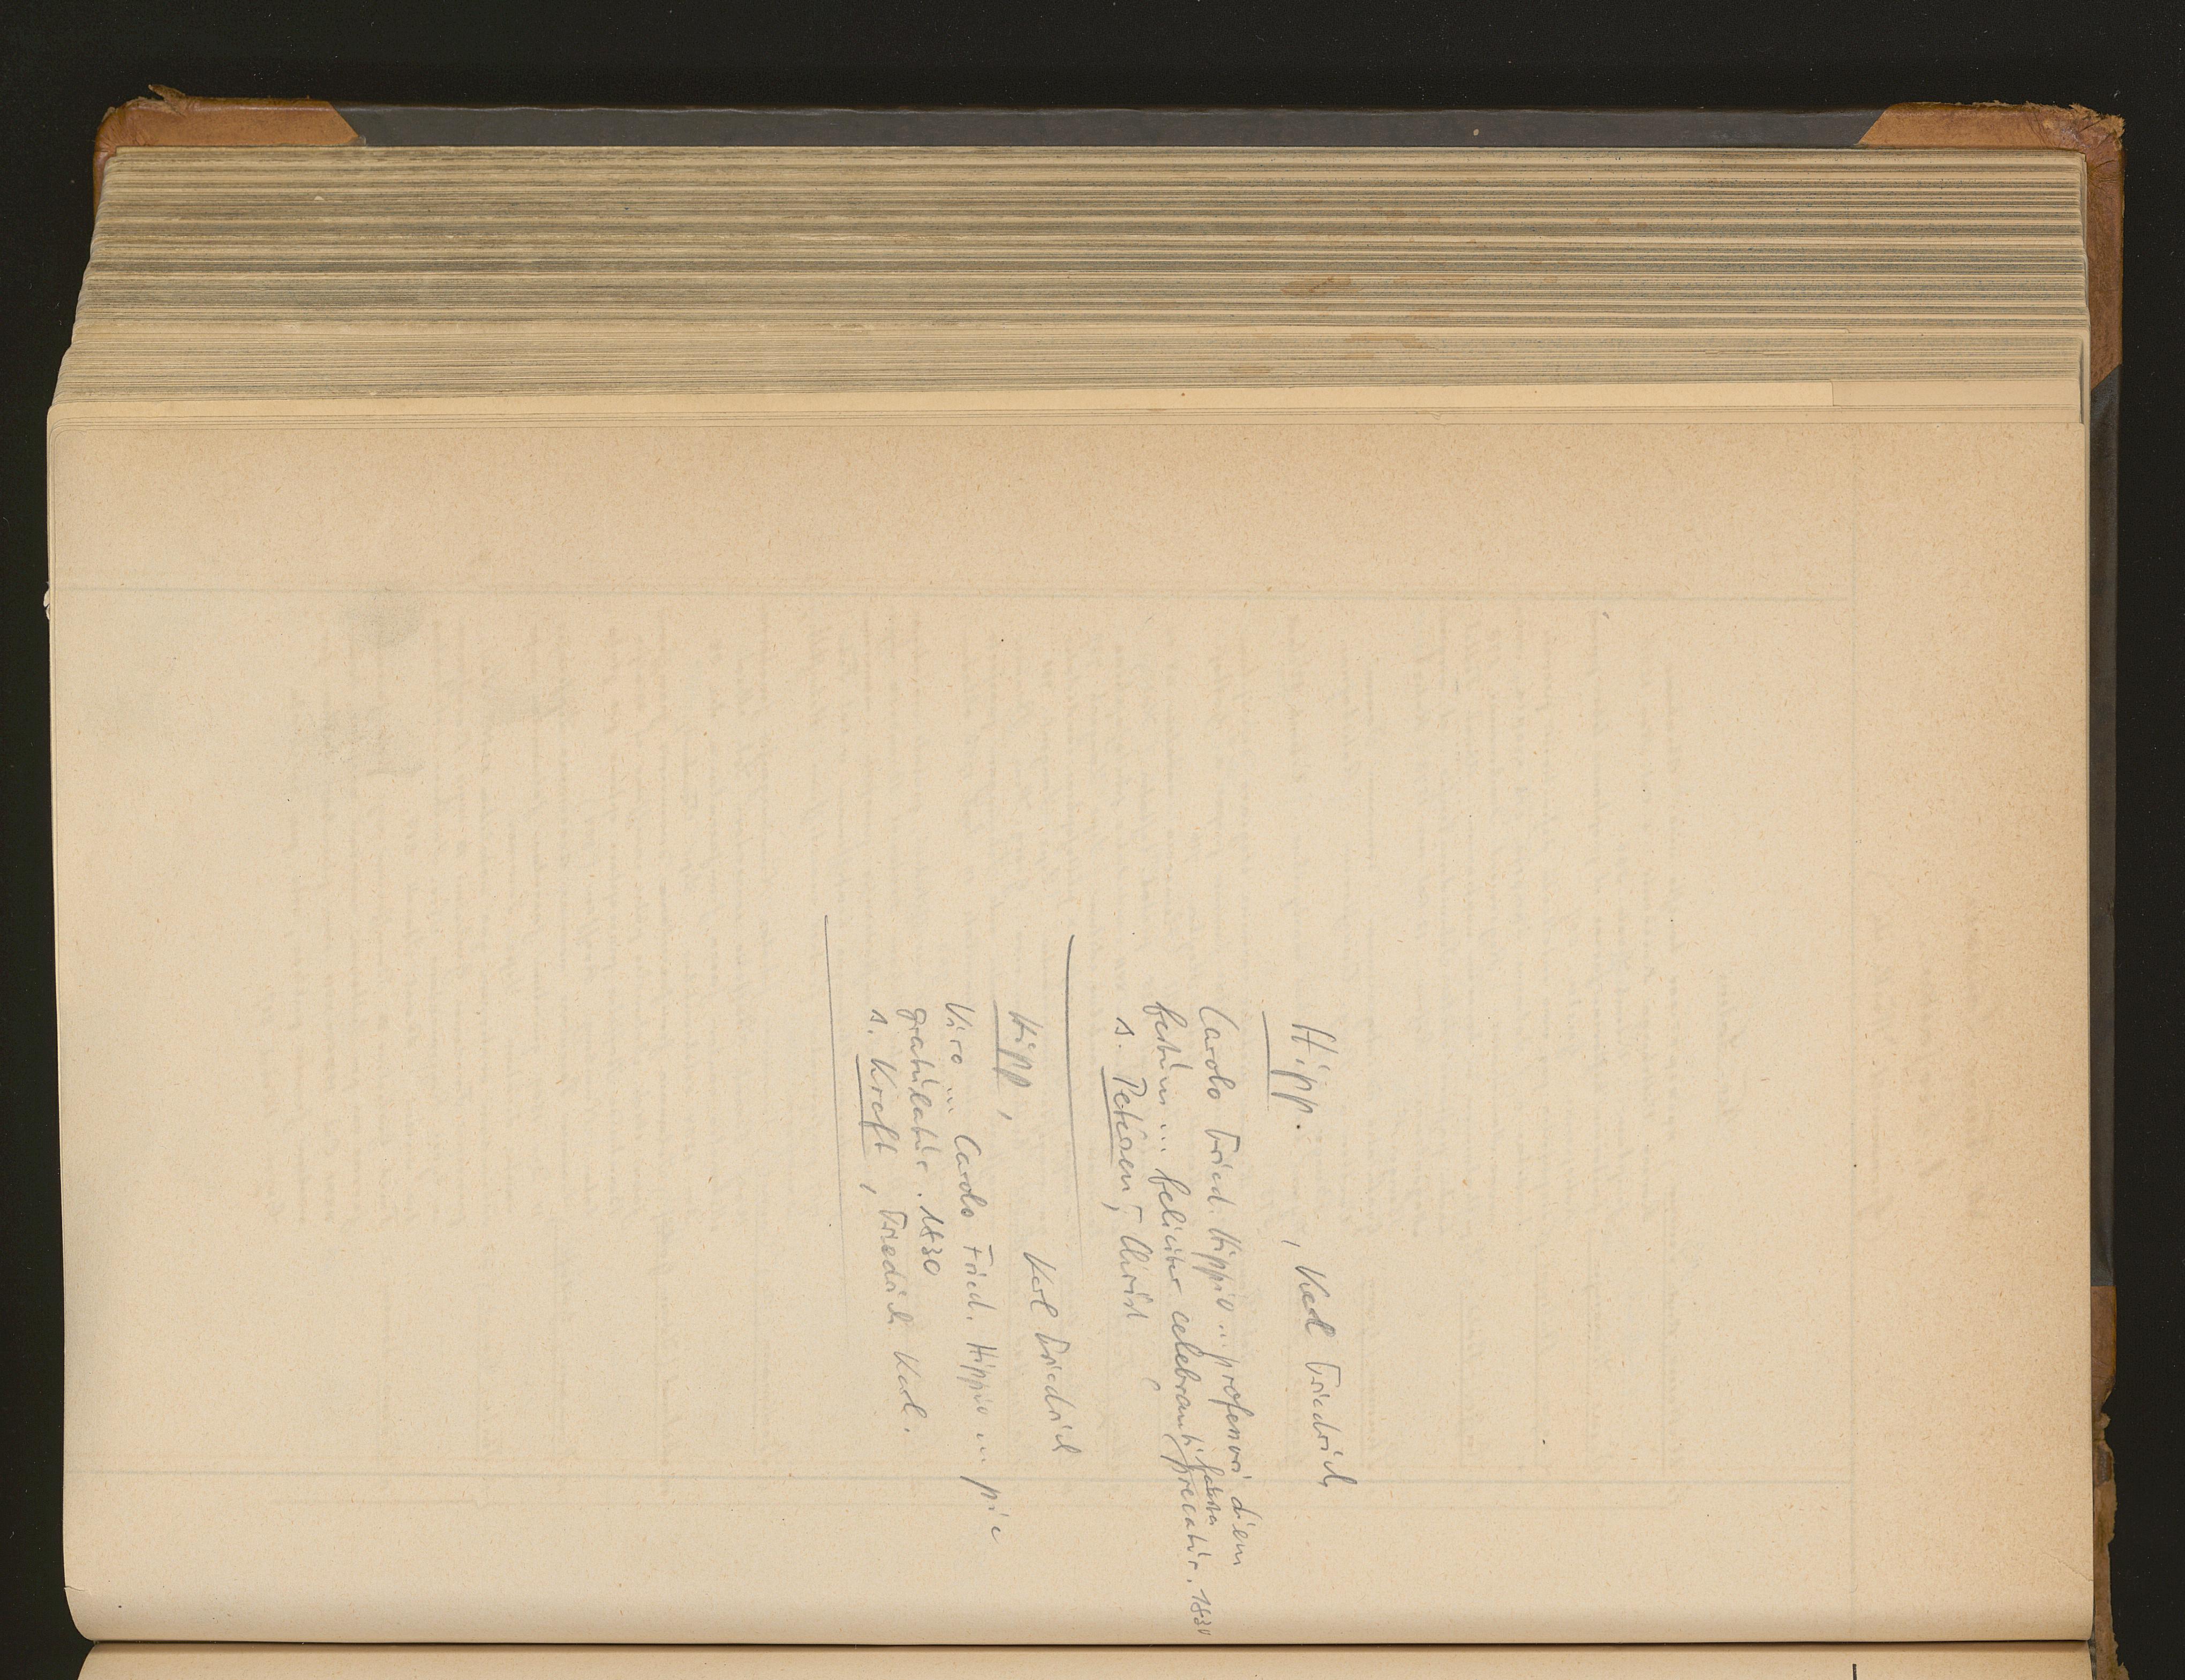 Hipp. , Karl Friedrich
Carolo Fried. Hippio ... professori diem
festum ... feliciter celebranti fausta precatur. 1830
s. Petersen, Christ
Hipp, Karl Friedrich
Viro ... Carolo Fried. Hippio ... pie
gratulatur. 1830
s. Kraft, Friedrich Karl.